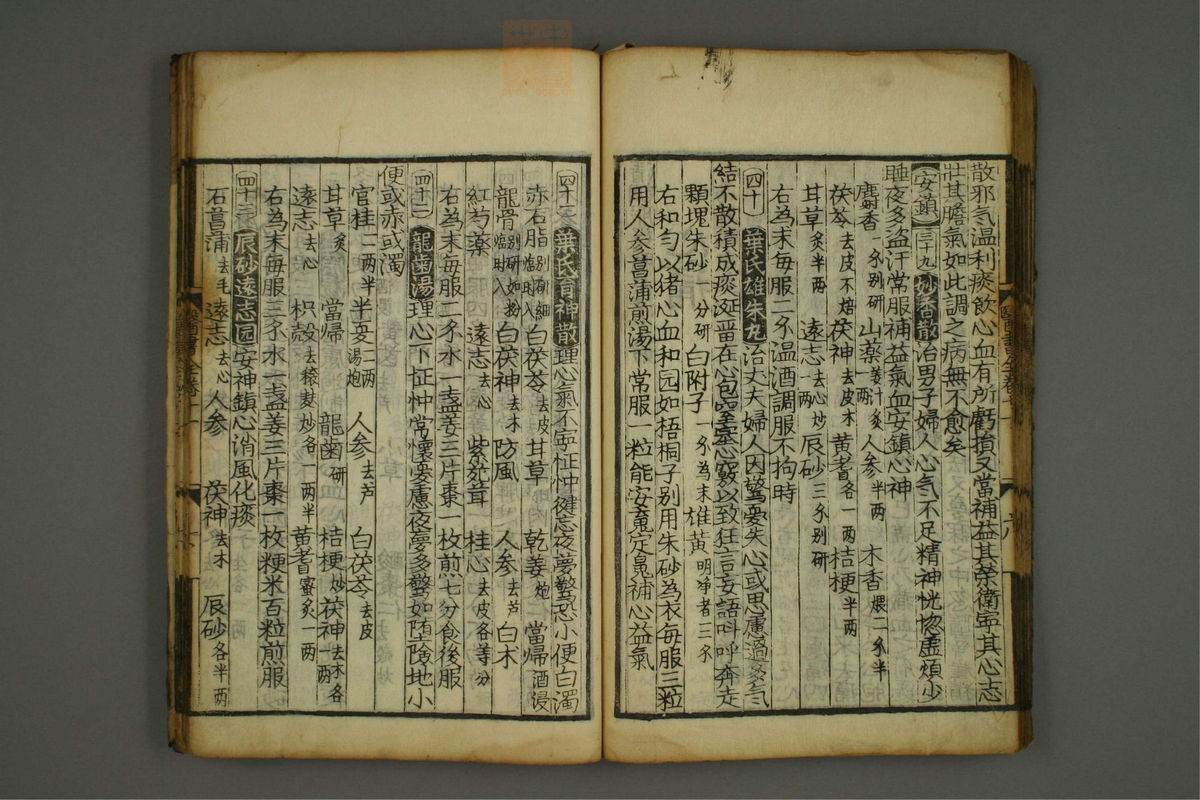 散邪气温利痰飲心血有所虧損又當補益其榮衛寧其心志
壯其膽氣如此調之病無不愈矣
安鎮 三十九 妙香散 治男子婦人心气不足精神恍惚虛煩少
睡夜多盗汗常服補益氣血安鎮心神
麝香一分别研 山藥姜汁炙一兩 人参半两 木香煨二分半
茯苓去皮不焙 茯神去皮木 黄耆各一两 桔梗半两
甘草炙半两 遠志去心炒一两 辰砂三分别研
右為末每服二分温酒調服不拘時
四十 葉氏雄朱丸 治丈夫婦人因驚憂失心或思慮過多气
結不散積成痰涎畱在心包窒塞心竅以致狂言妄語呌呼奔走
顆塊朱砂一分研 白附子一分為末 雄黄明净者三分
右和匀以猪心血和园如梧桐子别用朱砂為衣每服三粒
用人参菖蒲煎湯下常服一粒能安魂定魄補心益氣
四十一 葉氏育神散 理心氣不寧怔忡健忘夜夢驚恐小便白濁
赤石脂别研細臨時入 白茯苓去皮 甘草 乾姜炮 當帰酒浸
龍骨别研如粉臨時入 白茯神去木 防風 人参去芦 白术
紅芍藥 遠志去心 紫菀茸 桂心去皮各等分
右為末每服二分水一盏姜三片棗一枚煎七分食後服
四十二 龍齒湯 理心下怔忡常懷憂慮夜夢多驚如堕險地小
便或赤或濁
官桂二两半 半夏二两湯炮 人参去芦 白茯苓去皮
甘草炙 當帰 龍齒研 桔梗炒 茯神去木各一两
遠志去心 枳殼去穰麩炒各一两半 黄耆蜜炙一两
右為末每服三分水一盏姜三片棗一枚粳米百粒煎服
四十三 辰砂遠志园 安神鎮心消風化痰
石菖蒲去毛 遠志去心 人参 茯神去木 辰砂各半两